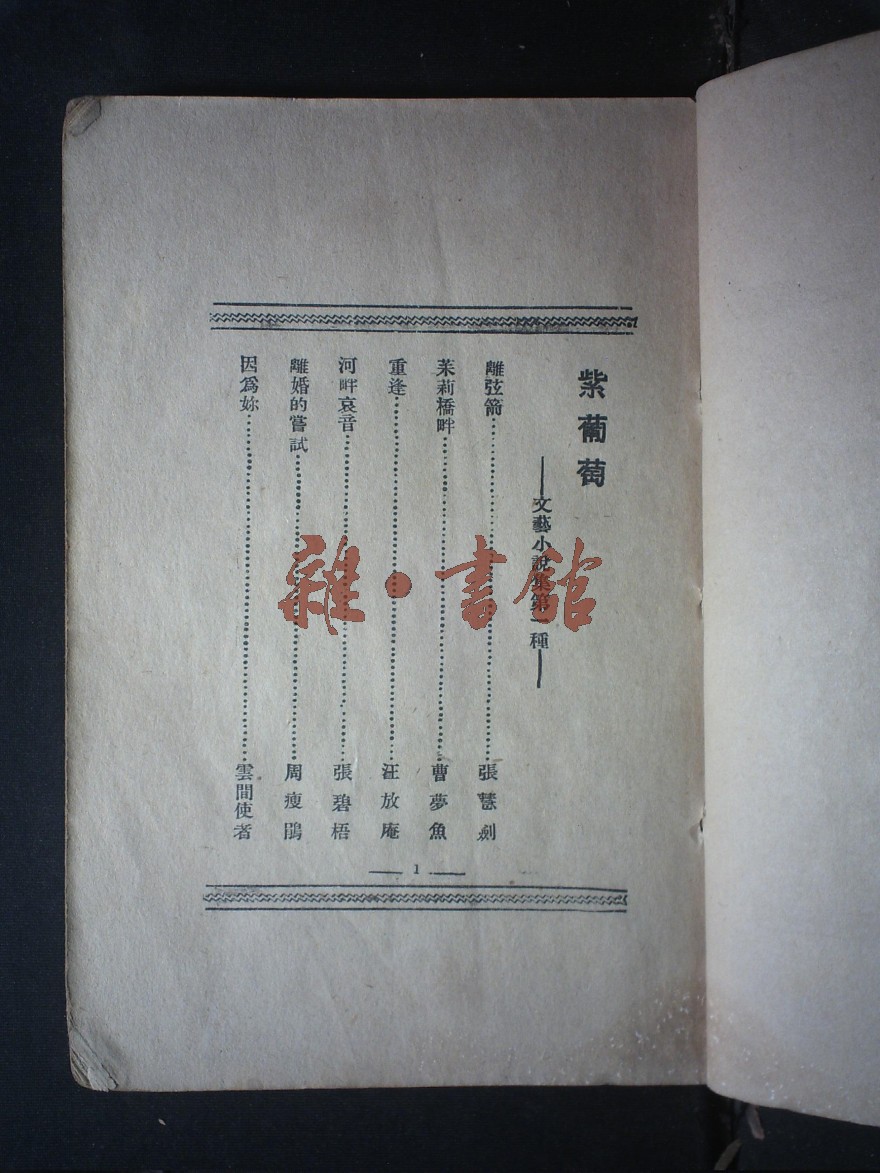 紫葡萄
——文藝小說集第一種——
離弦箭……張慧劍
茉莉橋畔……曹夢魚
重逢……汪放庵
河畔哀音……張碧梧
離婚的嘗試……周瘦鵑
因為妳……雲間使者
— 1 —
雜·書館